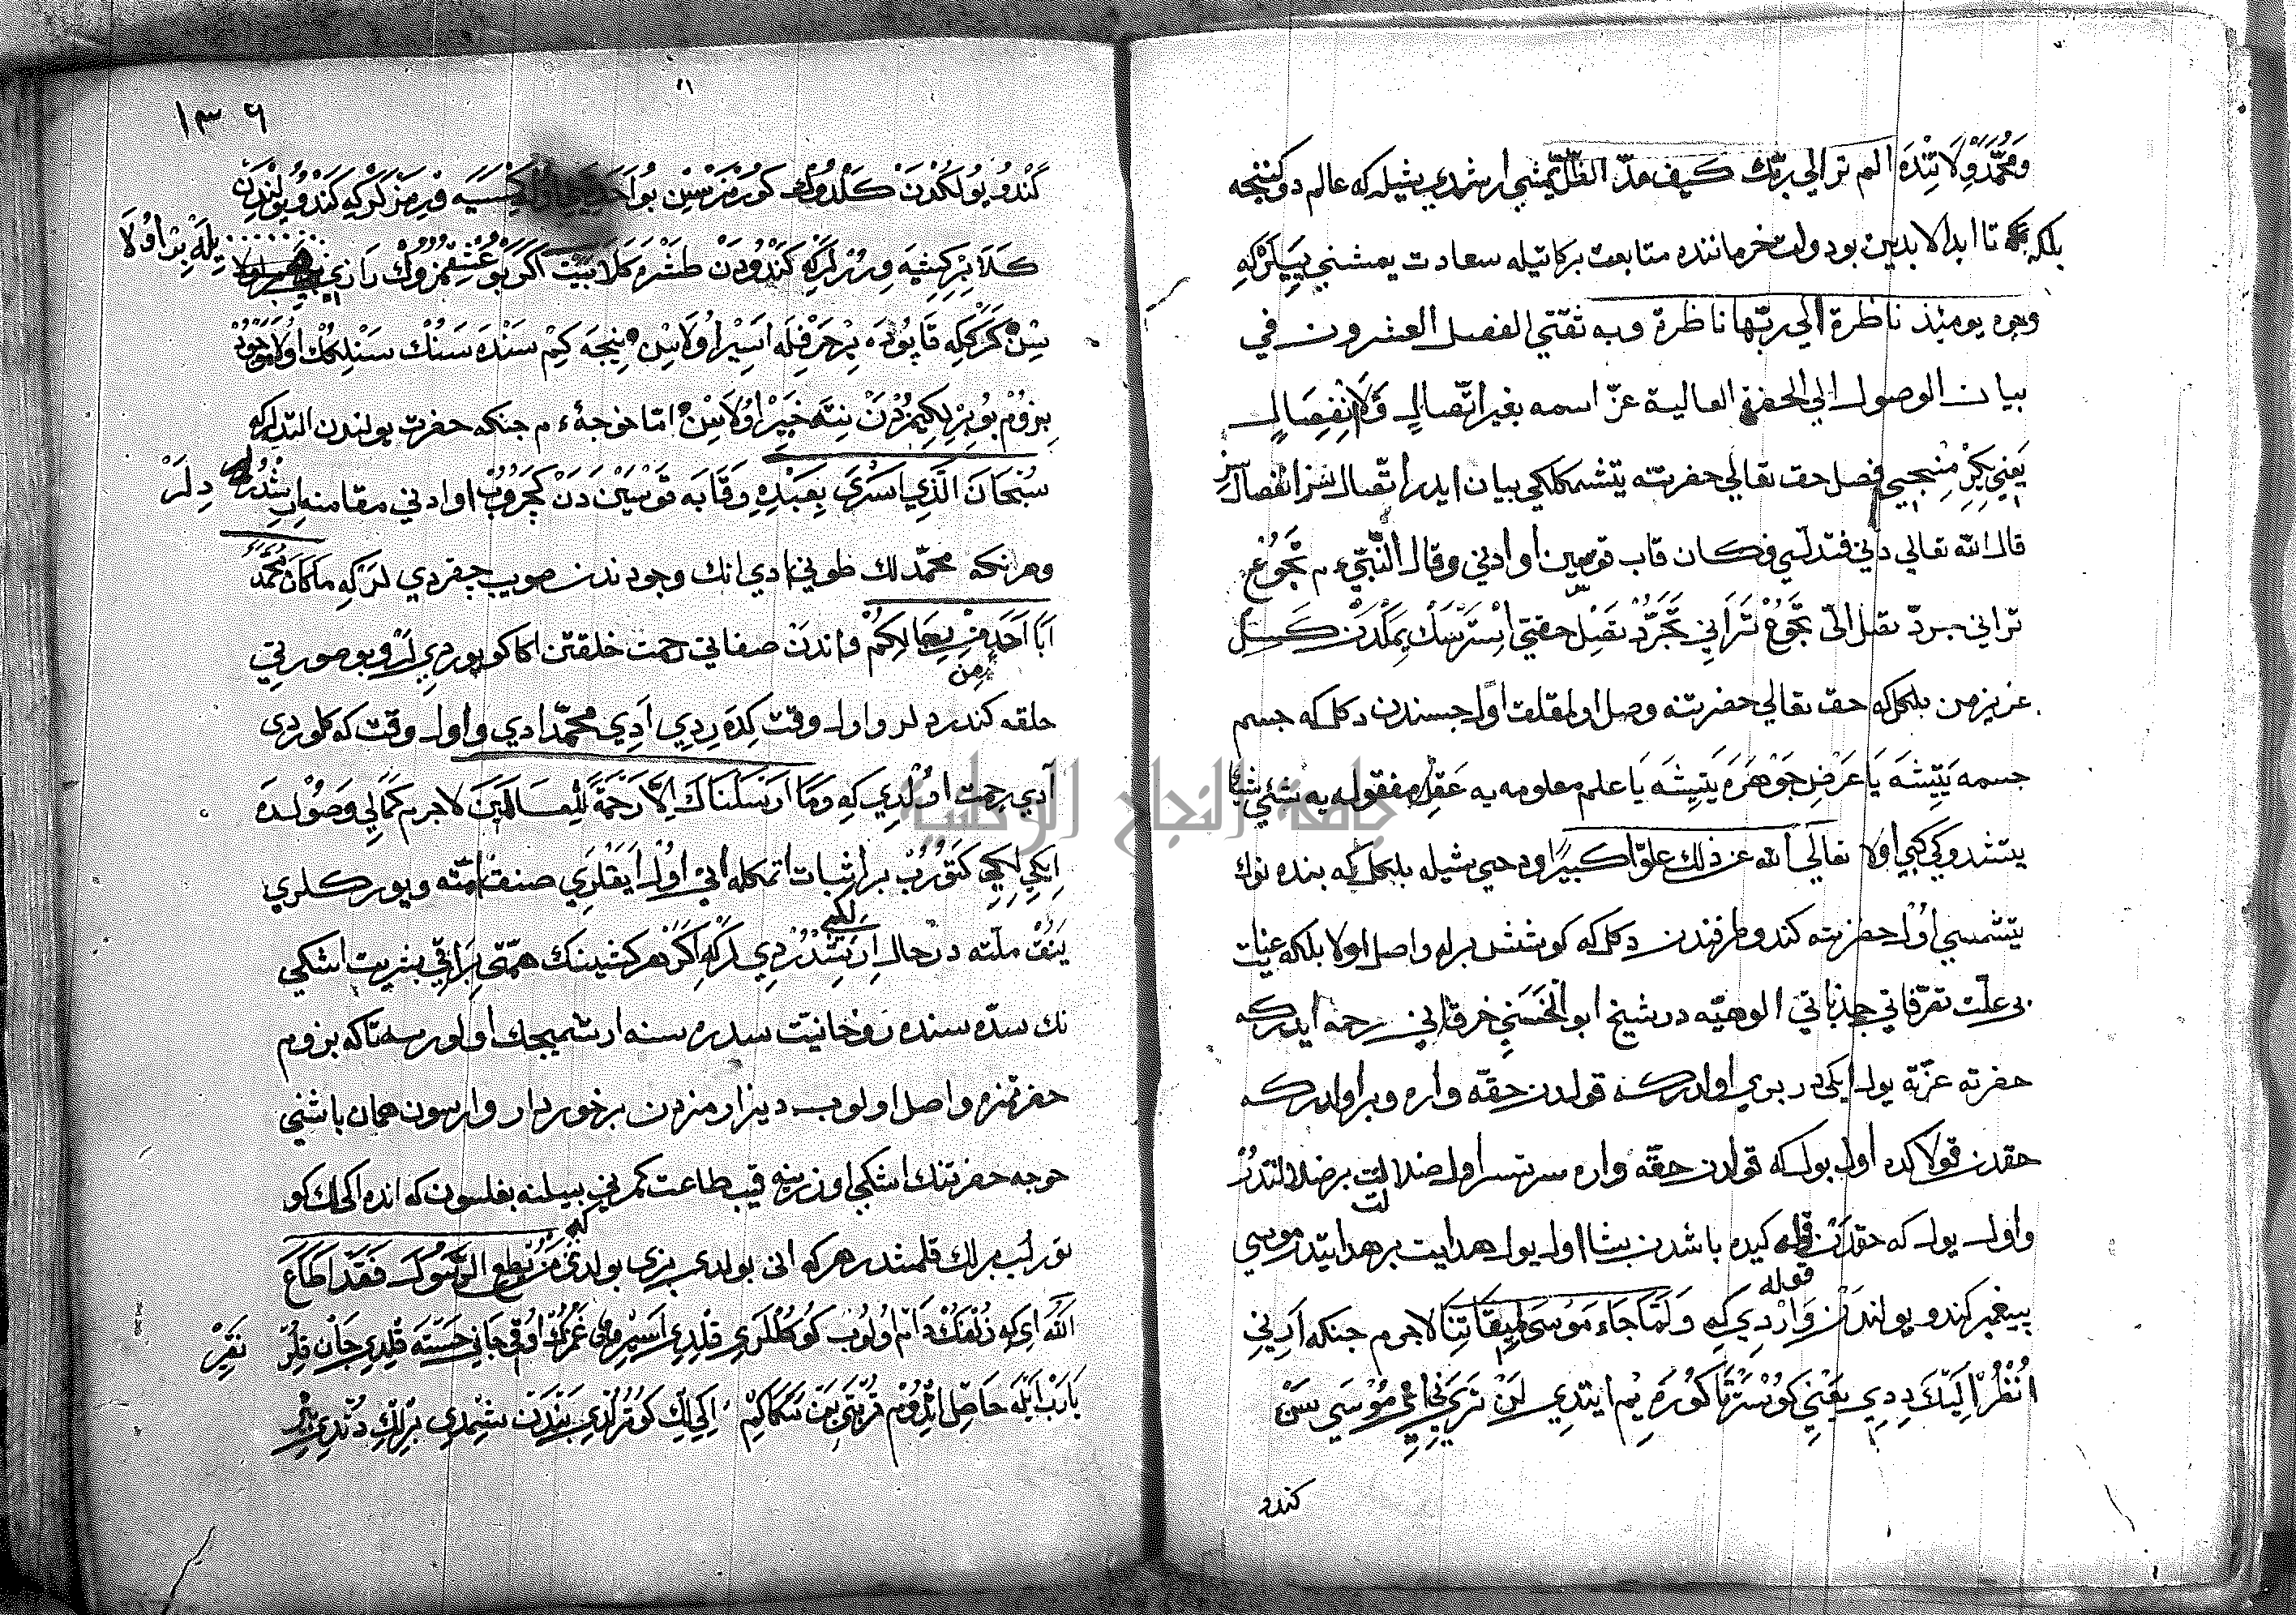 ومحمد ولايتنده الم تر الي ربك كيف مد الظل يمشي ارشدي بشيله كه عالم دوكننجه
بلكه تا ابد الابدين بو دولت خرماننده متابعت بركاتيله سعادت يمشني ييرلركه
وجوه يومئذ ناظرة الي ربها ناظرة وبه ثقتي الفصل العشرون في
بيان الوصول الي الحضرة العالية عز اسمه بغير اتصال ولا انفصال
يعني يكرمنجي فصل حق تعالي حضرتنه يتشمكلكي بيان ايدر اتصالسز انفصالسز
قال الله تعالي دني فتدلي فكان قاب قوسين او ادني وقال النبي م تجوع
تراني تجرد تصل الي تجوع تراني تجرد تصل حقي استرسك يمكدن كسل
عزيزمن بلكل كه حق تعالي حضرتنه وصل اولمقلق اول جسندن دكل كه جسم
جسمه يتيشه يا عرض جوهره يتيشه يا علم معلومه يه عقل معقوله يه شئ شيئا
يتشدوكي كبي اولا تعالي الله عن ذلك علوا كبيرا ودخي بشيله بلكل كه بنده نوك
يتشمسي اول حضرته كندو طرفندن دكل كه كوشش برله واصل اولا بلكه عنايت
بي علت تصرفاتي جذباتي الوهيه در شيخ ابو الحسن خرقاني رحمه ايدركه
حضرته عزته يول ايكي در بري اولدركه قولدن حقه واره وبر اولدركه
حقدن قولا كله اول يول كه قولدن حقه واره سرتسر اول ضلالت بر ضلالتدر
لت
واول يول كه حقدن قوله كيده باشدن بشا اول يول هدايت بر هدايتدر موسي
قوله
پيغمبر كندو يولندن واردي كه ولما جاء موسي لميقاتنا لاجرم جنكه ارني
انظر اليك ددي يعني كوستر تا كوره يم ايتدي لن تراني يا موسي سن
كندو
١٣٦
كندو يولكدن كلدوك كورمزسن بو كيسيه ويرمزلركه كندو يولندن
كلا بر كيشيه ويررلركه كندودن طشره كلا بيت اكر بو عشقمزوك رازي
يله براولا
سن كركله قاپوده بر حرفله اسير اولاسن نيجه كيم سنده سنوك سنلكك اولا موجود
بزوم بو بزلكيمزدن نته خبير اولاسن اما خوجۀ م جنكه حضرت يولندن التدلركه
سبحان الذي اسري بعبده وقابه قوسين دن كچروب او ادني مقامنه ايشدردلر
وهرنكه محمدلك طوني ادي انك وجودندن صويب چقردي لركه ما كان محمد
ابا احد من رجالكم واندن صفاتي رحمت خلقتن اكا كيوردي لر وبو صورتي
من
خلقه كندردلر واول وقت كده ردي ادي محمد ادي واول وقت كه كلوردي
آدي رحمت اولدي كه وما ارسلناك الا رحمة للعالمين لاجرم كمالي وصولده
ايكي ايكي كتورب بر اثبات اتمكله اني اول ايقلري صنف امته وپوركلري
ينق ملته درحال ايرتشدردي لركه اكر هر كشينك همتي براقي بشريت اشكي
نك سده سنده روحانيت سدره سنه ارشميجك اولورسه تاكه بزوم
حضرتمزه واصل اولوب ديزارمزدن برخوردار وارسون همان باشني
خوجه حضرتنك اشكي اوزرينه قيب طاعت كمرني بيلنه بغلسون كه انده اكي لك كو
توريلب برلك قلمشدر هركه اني بولدي بزي بولدي من يطع الرسول فقد اطاع
الله اي كه زلفنك دام اولوب كوكللري قلدي اسير غمزك اوقي جاني خسته قلدي جان
يا رب ايله حاصل ايدوم قربتي بن اكي لك كوترلدي بندن بشمدي برلك دتدي